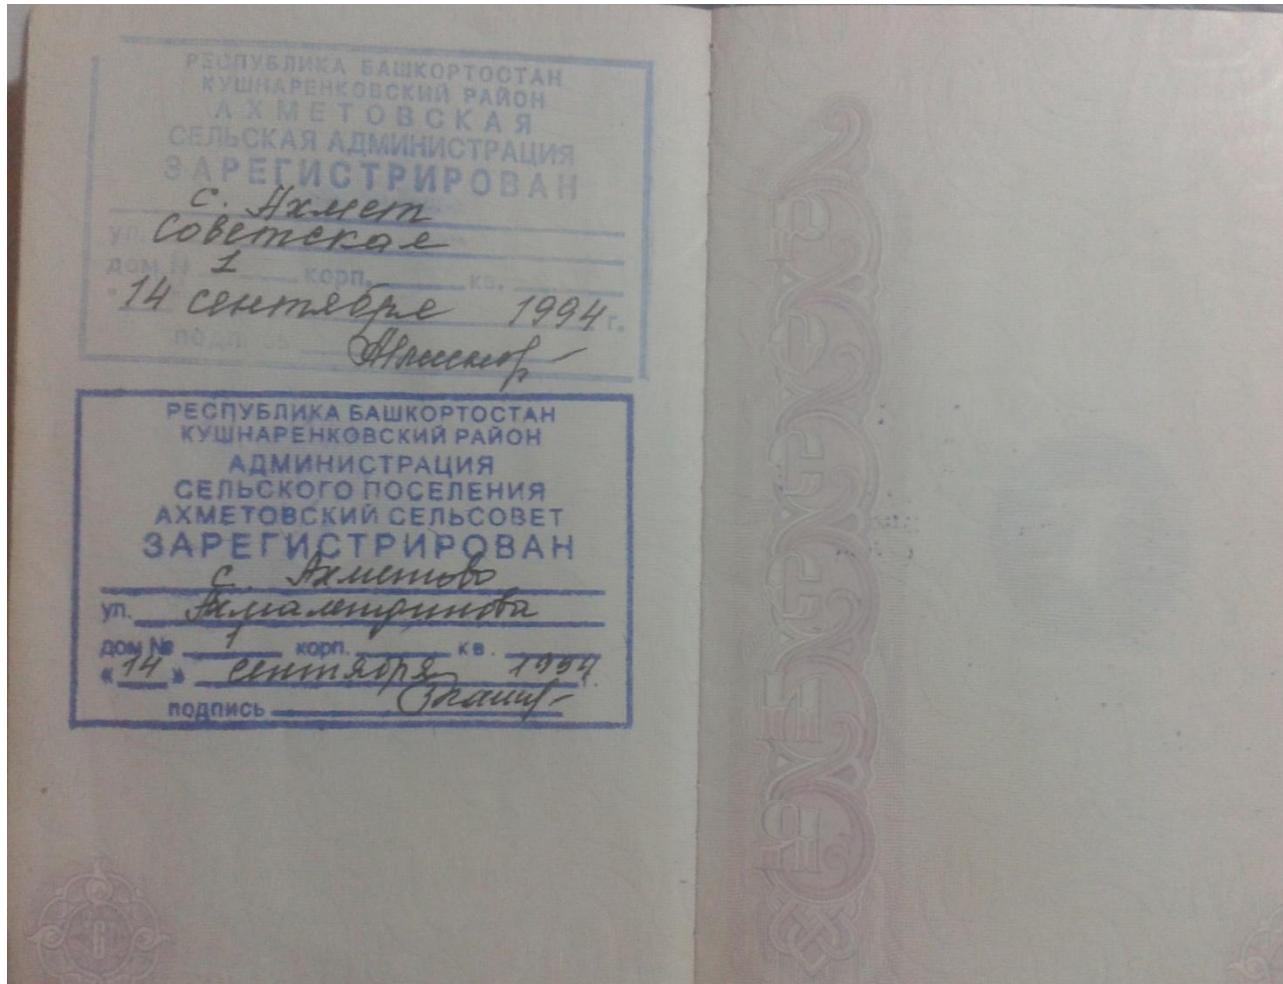 РЕСПУБЛИКА БАШКОРТОСТАН
КУШНАРЕНКОВСКИЙ РАЙОН
АХМЕТОВСКАЯ
СЕЛЬСКАЯ АДМИНИСТРАЦИЯ
ЗАРЕГИСТРИРОВАН
с. Ахмет
ул. Советская
дом № 1 корп. кв.
"14 сентября 1994 г.
подпись
РЕСПУБЛИКА БАШКОРТОСТАН
КУШНАРЕНКОВСКИЙ РАЙОН
АДМИНИСТРАЦИЯ
СЕЛЬСКОГО ПОСЕЛЕНИЯ
АХМЕТОВСКИЙ СЕЛЬСОВЕТ
ЗАРЕГИСТРИРОВАН
с. Ахметово
ул.
дом № 1 корп. кв.
«14» сентября 1994 г.
подпись
6